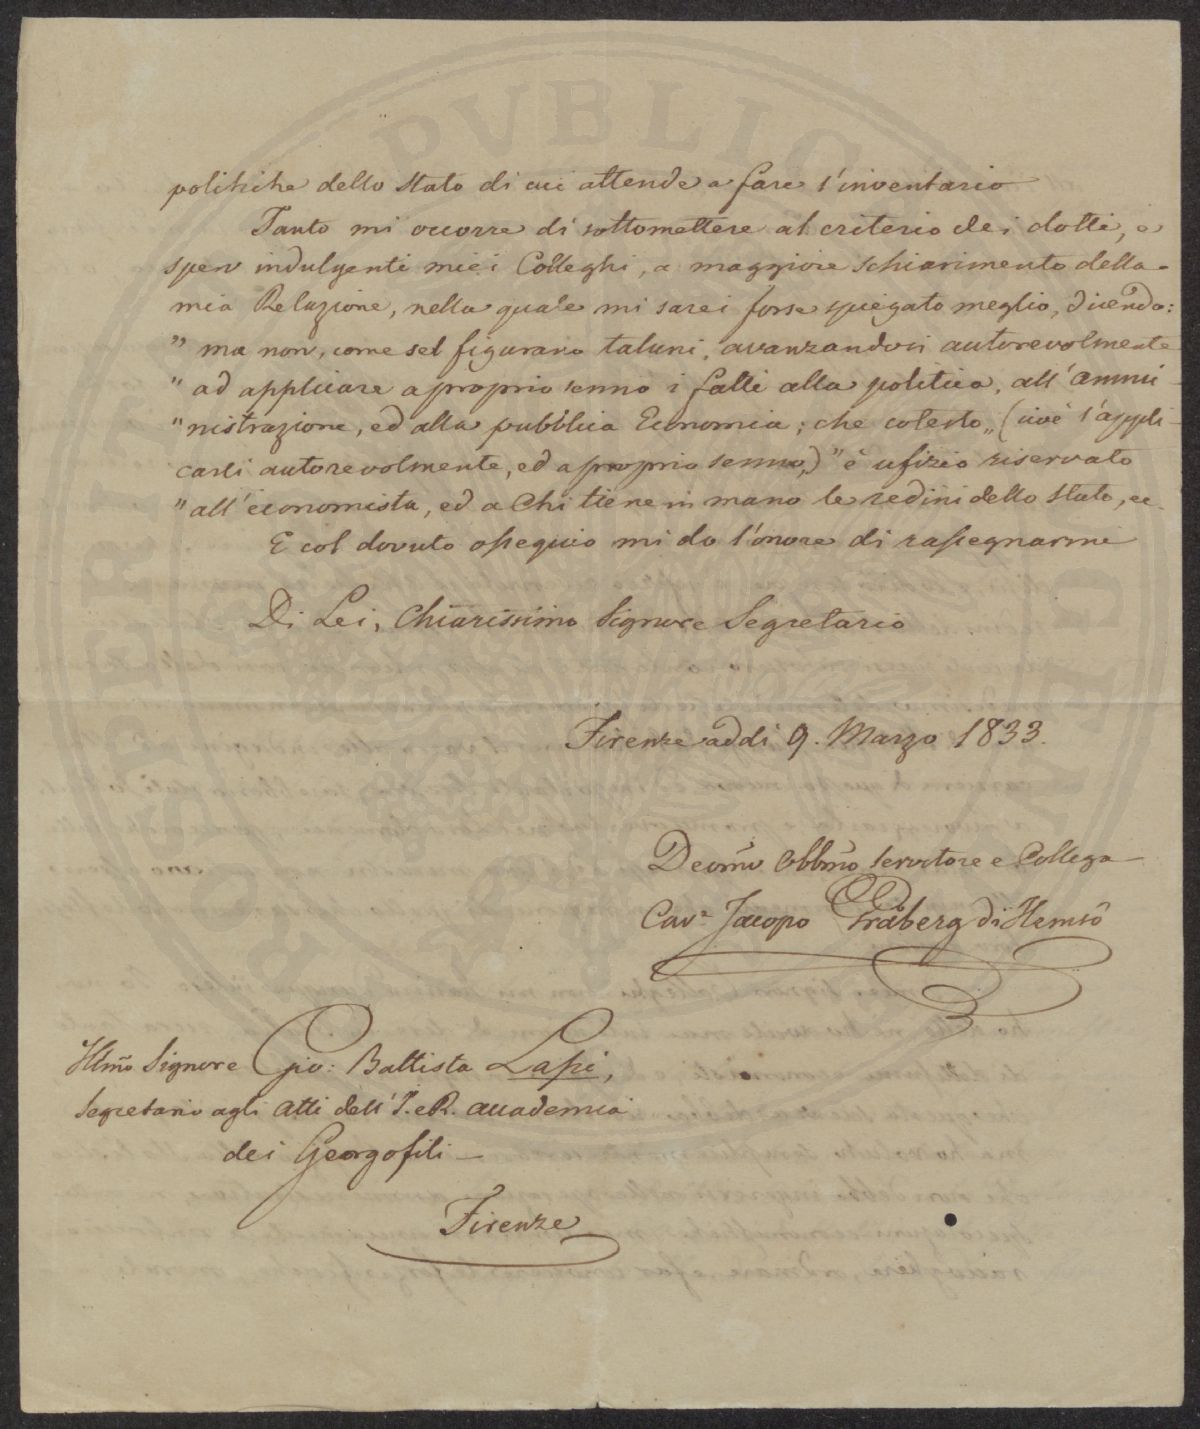 politiche dello Stato di cui attende a fare l'inventario
Tanto mi occorre di sottomettere al criterio dei dotti, e
spero indulgenti miei Colleghi, a maggiore schiarimento della
mia Relazione, nella quale mi sarei forse spiegato meglio, dicendo:
" ma non, come sel figurano taluni, avanzandosi autorevolmente
" ad applicare a proprio senno i fatti alla politica, all'ammi-
" nistrazione, ed alla pubblica Economia; che cotesto „ (cioè l'appli-
carli autorevolmente, ed a proprio senno,) " è ufizio riservato
" all'economista, ed a Chi tiene in mano le redini dello Stato, ec.
E col dovuto ossequio mi do l'onore di rassegnarmi
Di Lei, Chiarissimo Signore Segretario
Firenze addi 9. Marzo 1833.
Devmo Obbmo Servitore e Collega
Cavr Jacopo Gråberg di Hemsö
Illmo Signore Gio: Battista Lapi,
Segretario agli Atti dell'I. e R. Accademia
dei Georgofili —
Firenze